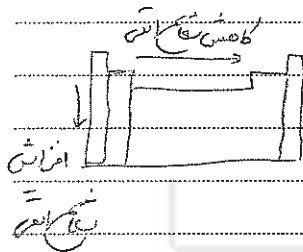 کاهش شعاع اتمی
افزایش
شعاع اتمی